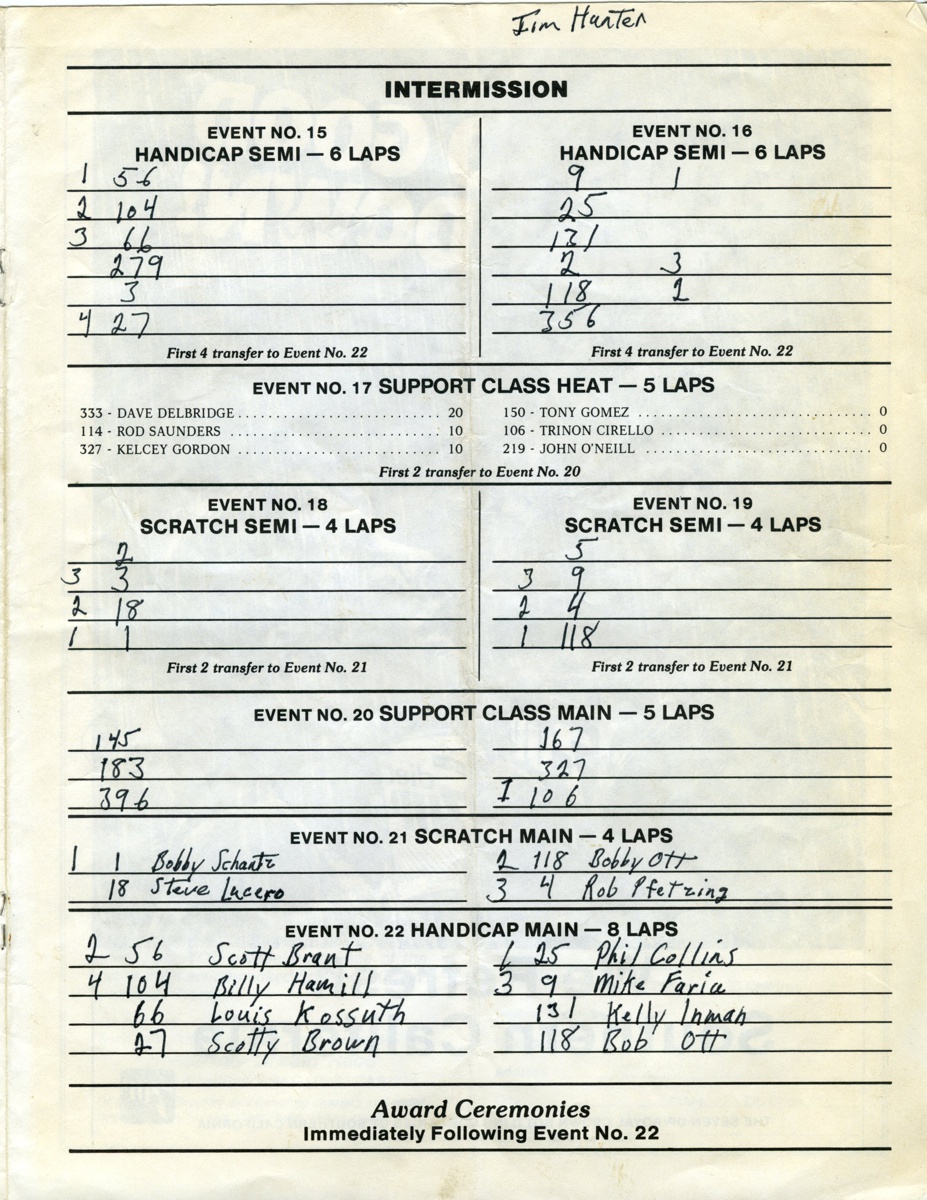 Jim Hunter
INTERMISSION
EVENT NO. 15
HANDICAP SEMI — 6 LAPS
1 56
2 104
3 66
279
3
4 27
First 4 transfer to Event No. 22
EVENT NO. 16
HANDICAP SEMI — 6 LAPS
9 1
25
131
2 3
118 2
356
First 4 transfer to Event No. 22
EVENT NO. 17 SUPPORT CLASS HEAT — 5 LAPS
333 - DAVE DELBRIDGE 20
114 - ROD SAUNDERS 10
327 - KELCEY GORDON 10
150 - TONY GOMEZ 0
106 - TRINON CIRELLO 0
219 - JOHN O'NEILL 0
First 2 transfer to Event No. 20
EVENT NO. 18
SCRATCH SEMI — 4 LAPS
2
3 3
2 18
1 1
First 2 transfer to Event No. 21
EVENT NO. 19
SCRATCH SEMI — 4 LAPS
5
3 9
2 4
1 118
First 2 transfer to Event No. 21
EVENT NO. 20 SUPPORT CLASS MAIN — 5 LAPS
145
183
396
167
327
1 106
EVENT NO. 21 SCRATCH MAIN — 4 LAPS
1 1 Bobby Schantz
18 Steve Lucero
2 118 Bobby Ott
3 4 Rob Pfetzing
EVENT NO. 22 HANDICAP MAIN — 8 LAPS
2 56 Scott Brant
4 104 Billy Hamill
66 Louis Kossuth
27 Scotty Brown
1 25 Phil Collins
3 9 Mike Faria
131 Kelly Inman
118 Bob Ott
Award Ceremonies
Immediately Following Event No. 22